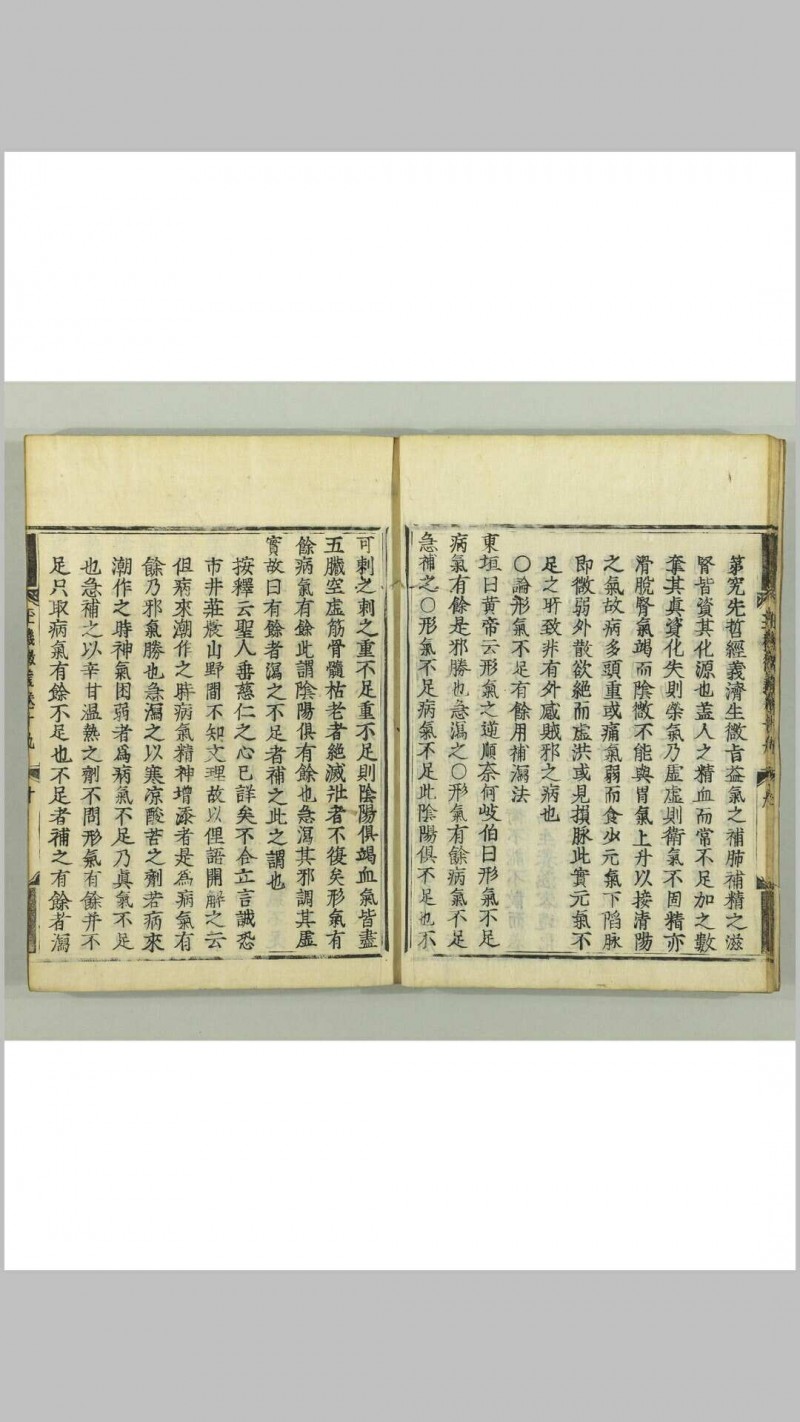 第究先哲經義濟生微旨益氣之補肺補精之滋
腎皆資其化源也盖人之精血而常不足加之數
奪其真資化失則榮氣乃虚虚則衛氣不固精亦
滑脫腎氣竭而陰微不能與胃氣上升以接清陽
之氣故病多頭重或痛氣弱而食少元氣下陷脉
即微弱外散欲絶而虚洪或見損脉此實元氣不
足之所致非有外感賊邪之病也
〇論形氣不足有餘用補瀉法
東垣曰黃帝云形氣之逆順奈何岐伯曰形氣不足
病氣有餘是邪勝也急瀉之〇形氣有餘病氣不足
急補之〇形氣不足病氣不足此陰陽俱不足也不
可刺之刺之重不足重不足則陰陽俱竭血氣皆盡
五臓空虚筋骨髓枯老者絶滅壯者不復矣形氣有
餘病氣有餘此謂陰陽俱有餘也急瀉其邪調其虚
實故曰有餘者瀉之不足者補之此之謂也
按釋云聖人垂慈仁之心已詳矣不合立言誠恐
市井莊農山野間不知文理故以俚語開解之云
但病來潮作之時病氣精神增添者是爲病氣有
餘乃邪氣勝也急瀉之以寒凉酸苦之劑若病來
潮作之時神氣困弱者爲病氣不足乃眞氣不足
也急補之以辛甘温熱之劑不問形氣有餘并不
足只取病氣有餘不足也不足者補之有餘者瀉